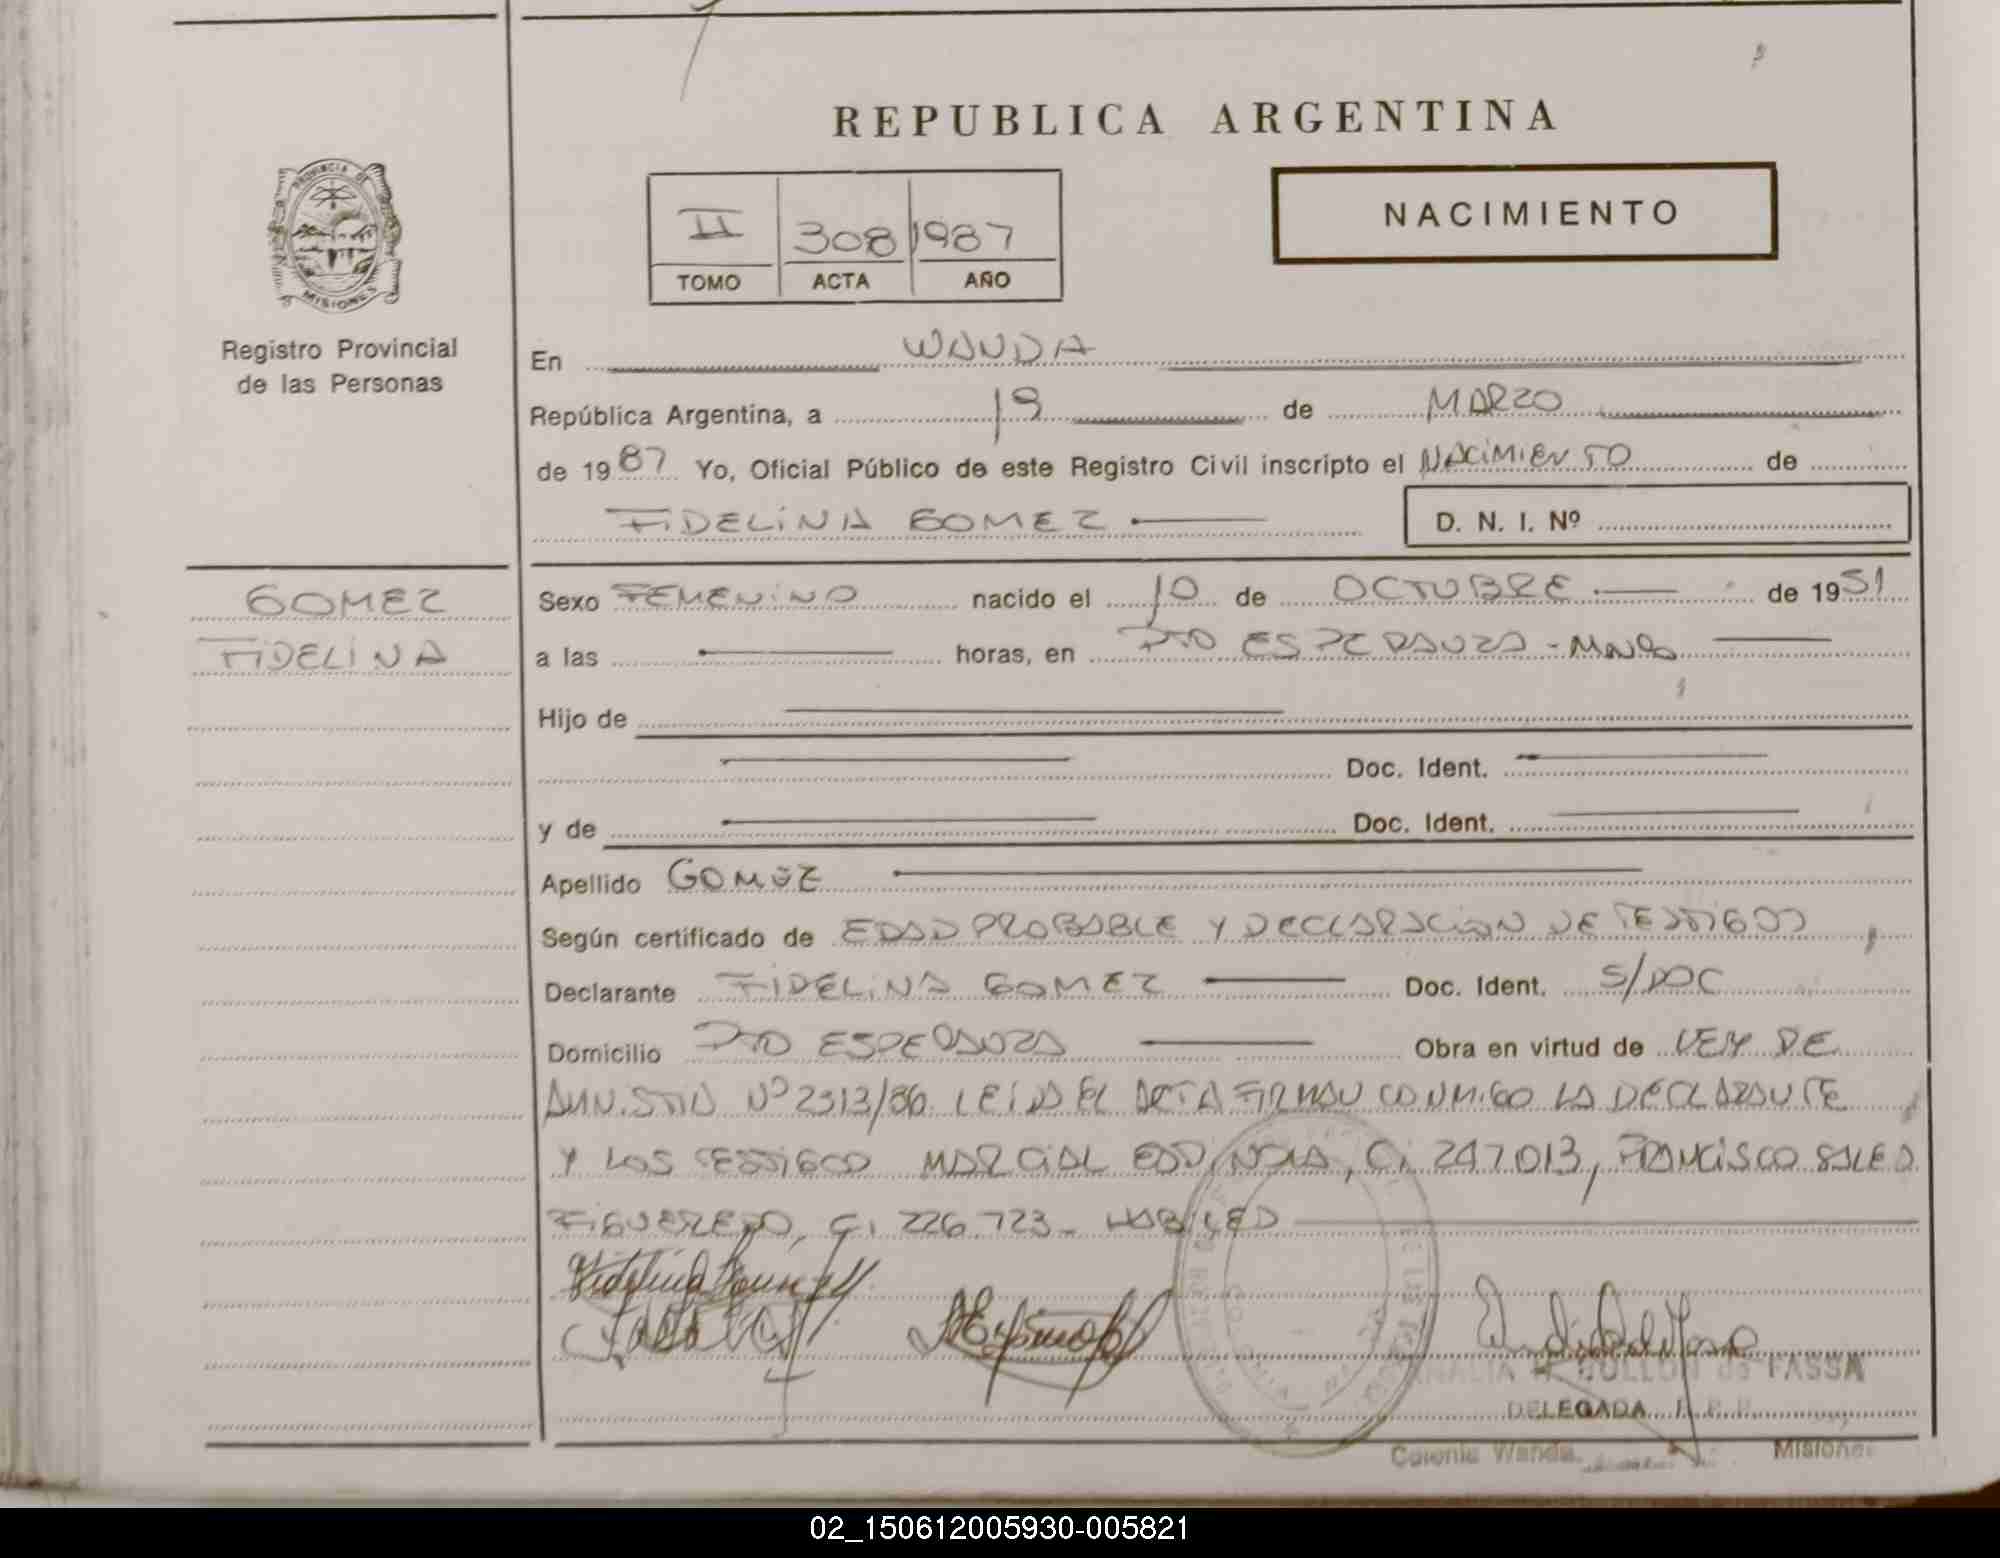 REPUBLICA ARGENTINA
PROVINCIA DE
MISIONES
Registro Provincial
de las Personas
II 308 1987
TOMO ACTA AÑO
NACIMIENTO
En WANDA
República Argentina, a 19 de MARZO
de 1987 Yo, Oficial Público de este Registro Civil inscripto el NACIMIENTO de
FIDELINA GOMEZ D. N. I. Nº
GOMEZ
FIDELINA
Sexo FEMENINO nacido el 10 de OCTUBRE de 1951
a las horas, en PTO ESPERANZA - MNES
Hijo de
Doc. Ident.
y de Doc. Ident.
Apellido GOMEZ
Según certificado de EDAD PROBABLE Y DECLARACION DE TESTIGOS,
Declarante FIDELINA GOMEZ Doc. Ident. S/DOC
Domicilio PTO ESPERANZA Obra en virtud de LEY DE
AMNISTIA Nº 2313/86. LEIDA EL ACTA FIRMAN CONMIGO LA DECLARANTE
Y LOS TESTIGOS MARCIAL ESPINOLA, C.I 247.013, FRANCISCO SALES
FIGUEREDO, C.I 226.723 - HABILES
DE FASSA
DELEGADA R. P. P.
Colonia Wanda Misiones
02_150612005930-005821